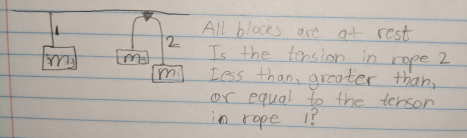 1
2
m
m
m
All blocks are at rest
Is the tension in rope 2
Less than, greater than,
or equal to the tenson
in rope 1?